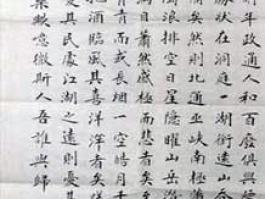 明年政通人和百廢俱興
勝狀在洞庭一湖銜遠山吞
備矣然則北通巫峽南極瀟
濁浪排空日星隱曜山岳潛
滿目蕭然感極而悲者矣
青青而或長烟一空皓月千
把酒臨風其喜洋洋者矣嗟
憂其民處江湖之遠則憂
樂歟噫微斯人吾誰與歸